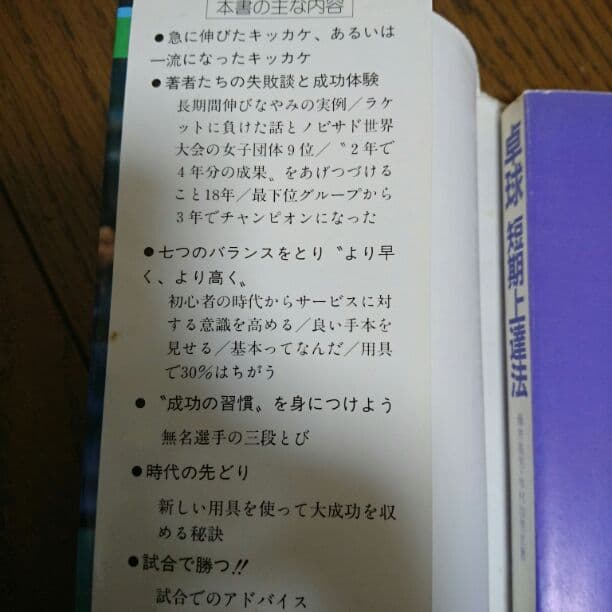 本書の主な内容
●急に伸びたキッカケ、あるいは
一流になったキッカケ
●著者たちの失敗談と成功体験
長期間伸びなやみの実例／ラケ
ットに負けた話とノビサド世界
大会の女子団体9位／〝2年で
4年分の成果〟をあげつづける
こと18年／最下位グループから
3年でチャンピオンになった
●七つのバランスをとり〝より早
く、より高く〟
初心者の時代からサービスに対
する意識を高める／良い手本を
見せる／基本ってなんだ／用具
で30％はちがう
●〝成功の習慣〟を身につけよう
無名選手の三段とび
●時代の先どり
新しい用具を使って大成功を収
める秘訣
●試合で勝つ!!
試合でのアドバイス
卓球 短期上達法